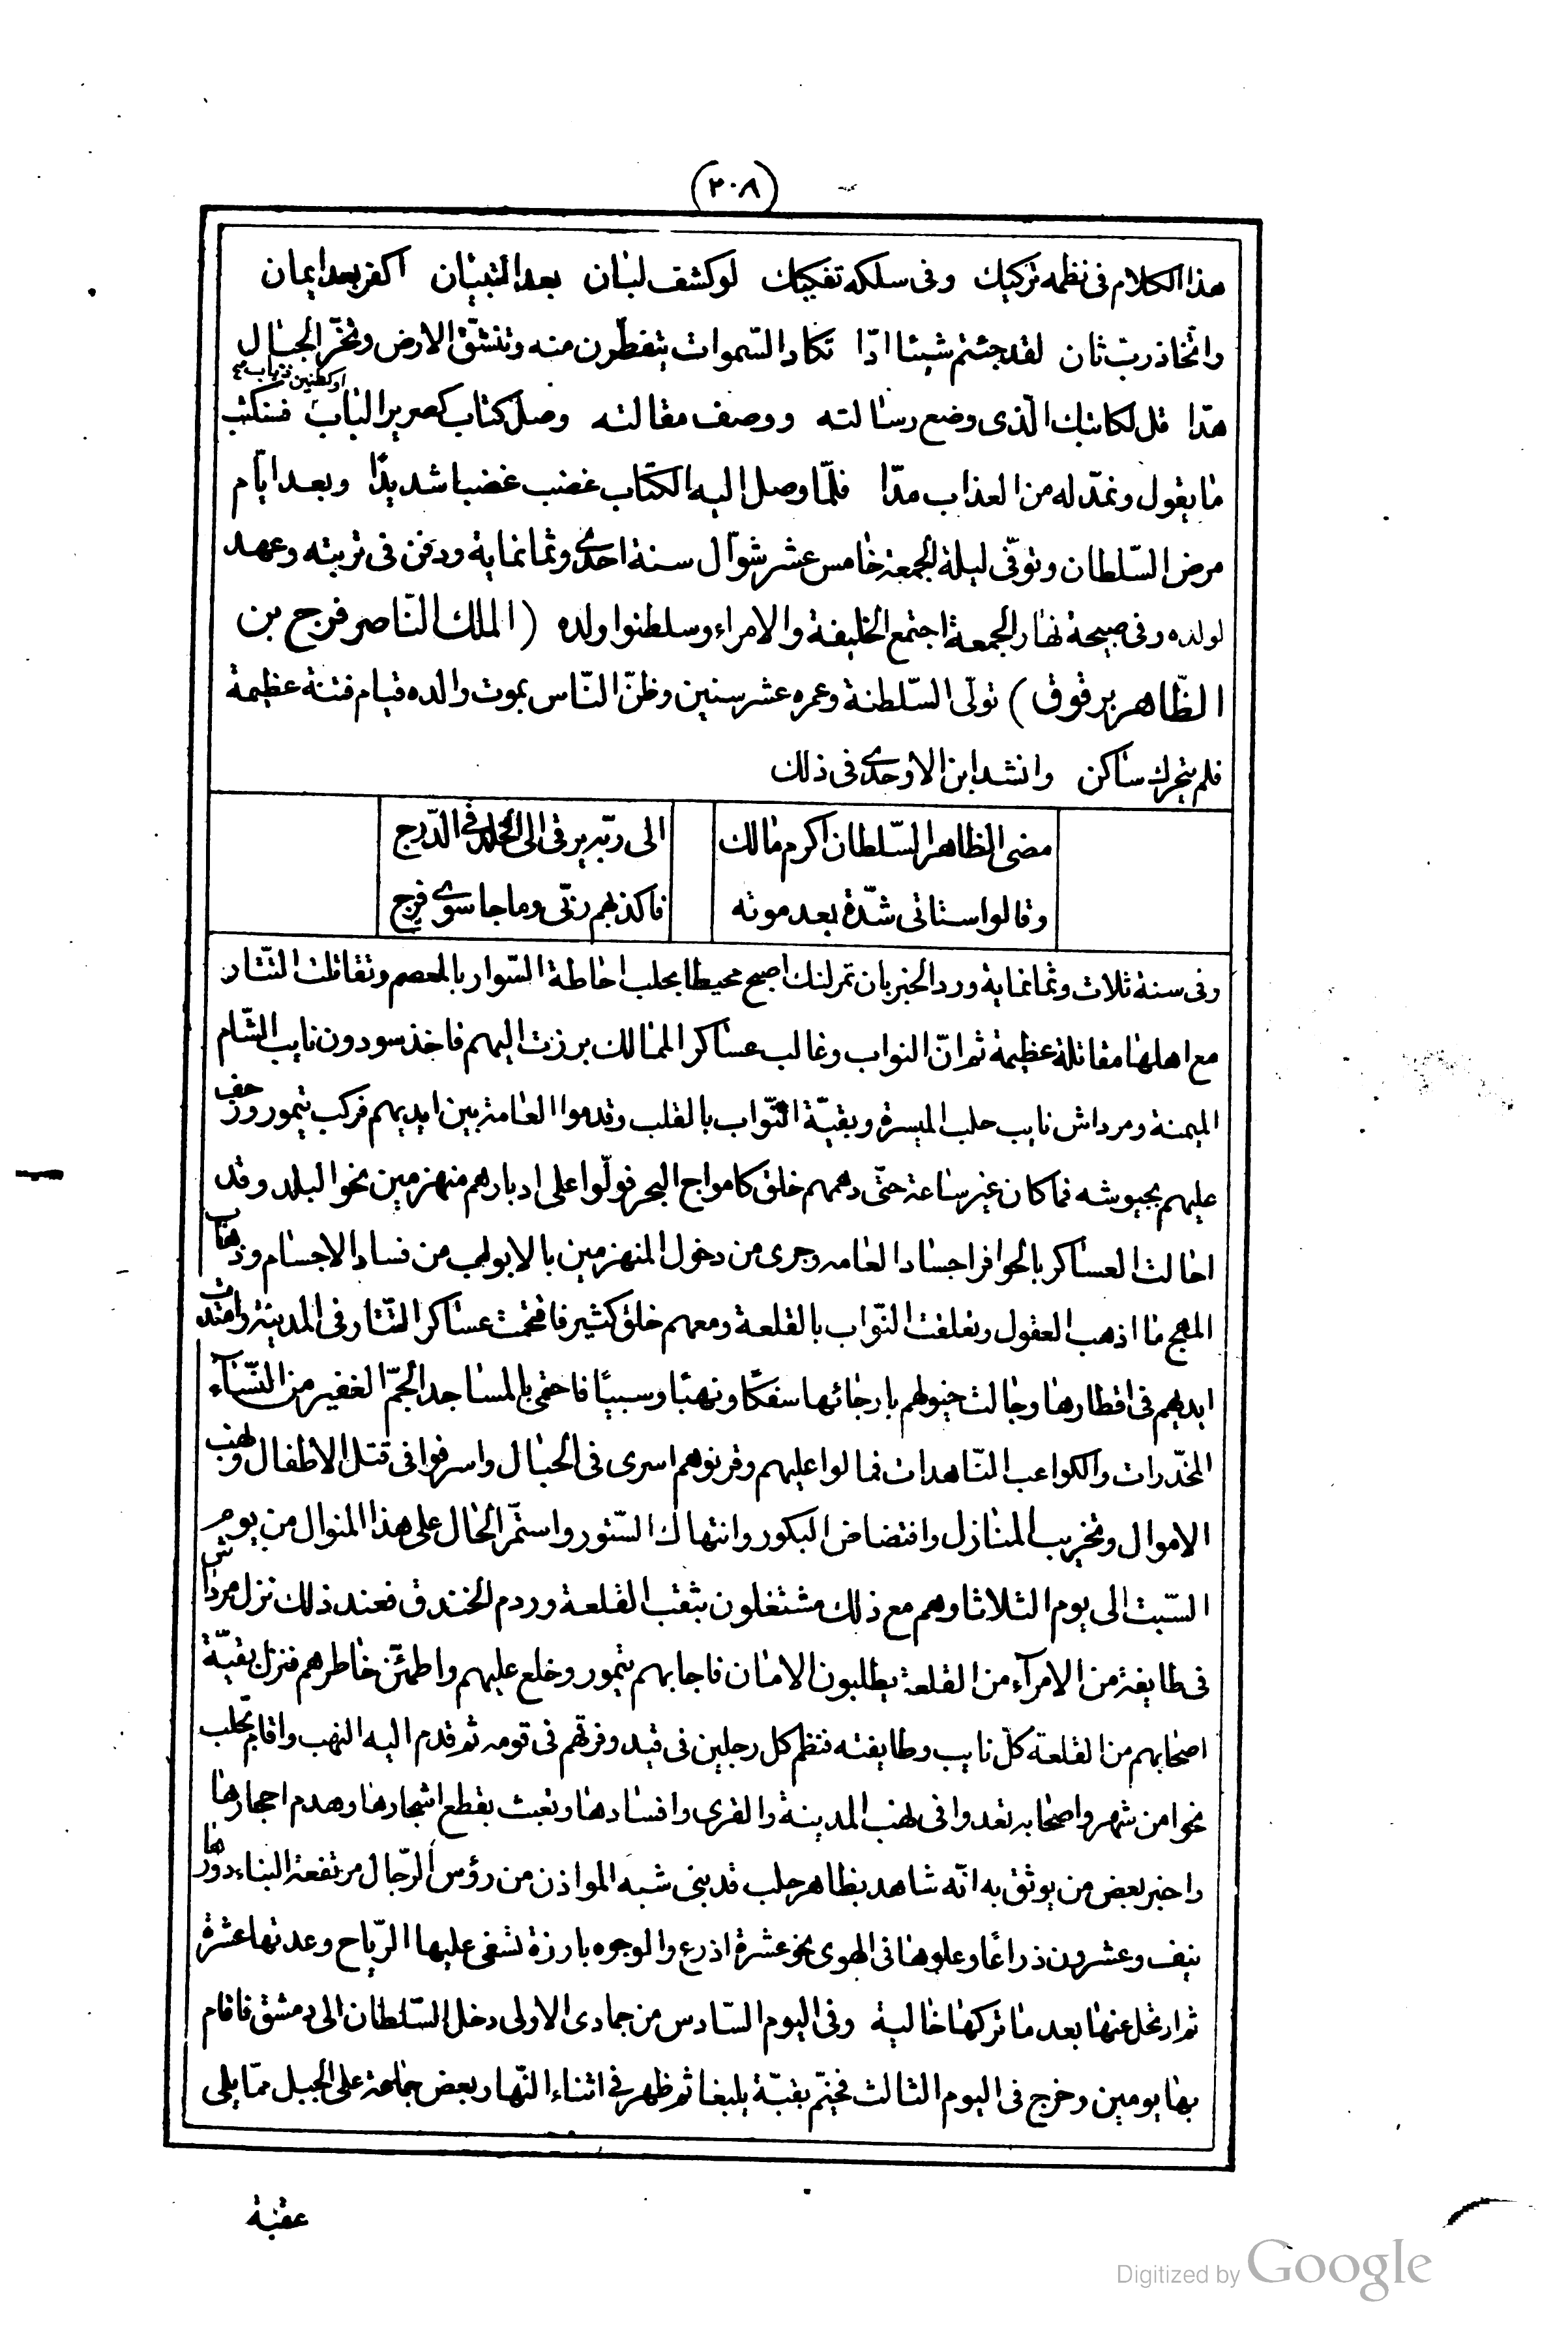 (٢٠٨)
هذا الكلام فى نظمه تركيك وفى سلكه تفكيك لو كشف لبان بعد التبيان اكفر بعد ايمان
واتخاذ ربّ ثان لقد جئتم شيئا ادّا تكاد السّموات يتفطّرن منه وتنشقّ الارض وتخرّ الجبال
هدّا قل لكاتبك الّذى وضع رسالته ووصف مقالته وصل كتاب كصرير الباب او كطنين ذباب سنكتب
ما يقول ونمدّ له من العذاب مدّا فلمّا وصل اليه الكتاب غضب غضبا شديدًا وبعد ايّام
مرض السّلطان وتوفّى ليلة الجمعة خامس عشر شوّال سنة احدى وثمانماية ودفن فى تربته وعهد
لولده وفى صبيحة نهار الجمعة اجتمع الخليفة والامراء وسلطنوا ولده (الملك النّاصر فرج بن
الظّاهر برقوق) تولّى السّلطنة وعمره عشر سنين وظنّ النّاس بموت والده قيام فتنة عظيمة
فلم يتحرك ساكن وانشد ابن الاوحدى فى ذلك
مضى الظاهر السّلطان اكرم مالك الى ربّه يرقى الى الخلد فى الدّرج
وقالوا ستاتى شدّة بعد موته فاكذبهم ربّى وما جا سوى فرج
وفى سنة ثلاث وثمانماية ورد الخبر بان تمرلنك اصبح محيطا بحلب احاطة السّوار بالمعصم وتقاتلت التتار
مع اهلها مقاتلة عظيمة ثم انّ النواب وغالب عساكر الممالك برزت اليهم فاخذ سودون نايب الشّام
الميمنة ومرداش نايب حلب الميسرة وبقيّة النّواب بالقلب وقدموا العامة بين ايديهم فركب تيمور وزحف
عليهم بجيوشه فما كان غير ساعة حتّى دهمهم خلق كامواج البحر فولّوا على ادبارهم منهزمين نحو البلد وقد
احالت العساكر بالحوافر اجساد العامه وجرى من دخول المنهزمين بالابواب من فساد الاجسام وذهاب
المهج ما اذهب العقول وتعلقت النّواب بالقلعة ومعهم خلق كثير فاقتحمت عساكر التّتار فى المدينة وامتدت
ايديهم فى اقطارها وجالت خيولهم بارجائها سفكًا ونهبًا وسبيًا فاحتمى بالمساجد الجمّ الغفير من النّسآء
المخدّرات والكواعب النّاهدات فمالوا عليهم وقرنوهم اسرى فى الحبال واسرفوا فى قتل الاطفال ونهب
الاموال وتخريب المنازل وافتضاض البكور وانتهاك السّتور واستمّر الحال على هذا المنوال من يوم
السّبت الى يوم الثلاثا وهم مع ذلك مشتغلون بثقب القلعة وردم الخندق فعند ذلك نزل مرداش
فى طايفة من الامرآء من القلعة يطلبون الامان فاجابهم تيمور وخلع عليهم واطمئن خاطرهم فنزل بقيّة
اصحابهم من القلعة كلّ نايب وطايفته فنظم كل رجلين فى قيد وفرقهم فى قومه ثم قدم اليه النهب واقام بحلب
نحوا من شهر واصحابه تعدوا فى نهب المدينة والقرى وافسادها وتعبث بقطع اشجارها وهدم احجارها
واخبر بعض من يوثق به انّه شاهد بظاهر حلب قد بنى شبه المواذن من رؤس الرّجال مرتفعة البناء دورها
نيف وعشرون ذراعًا وعلوها فى الهوى نحو عشرة اذرع والوجوه بارزة تسفى عليها الرّياح وعدتها عشرة
ثم ارتحل عنها بعد ما تركها خالية وفى اليوم السّادس من جمادى الاولى دخل السّلطان الى دمشق فاقام
بها يومين وخرج فى اليوم الثالث فخيّم بقبّة يلبغا ثم ظهر فى اثناء النّهار بعض جماعة على الجبل ممّا يلى
عقبة
Digitized by Google